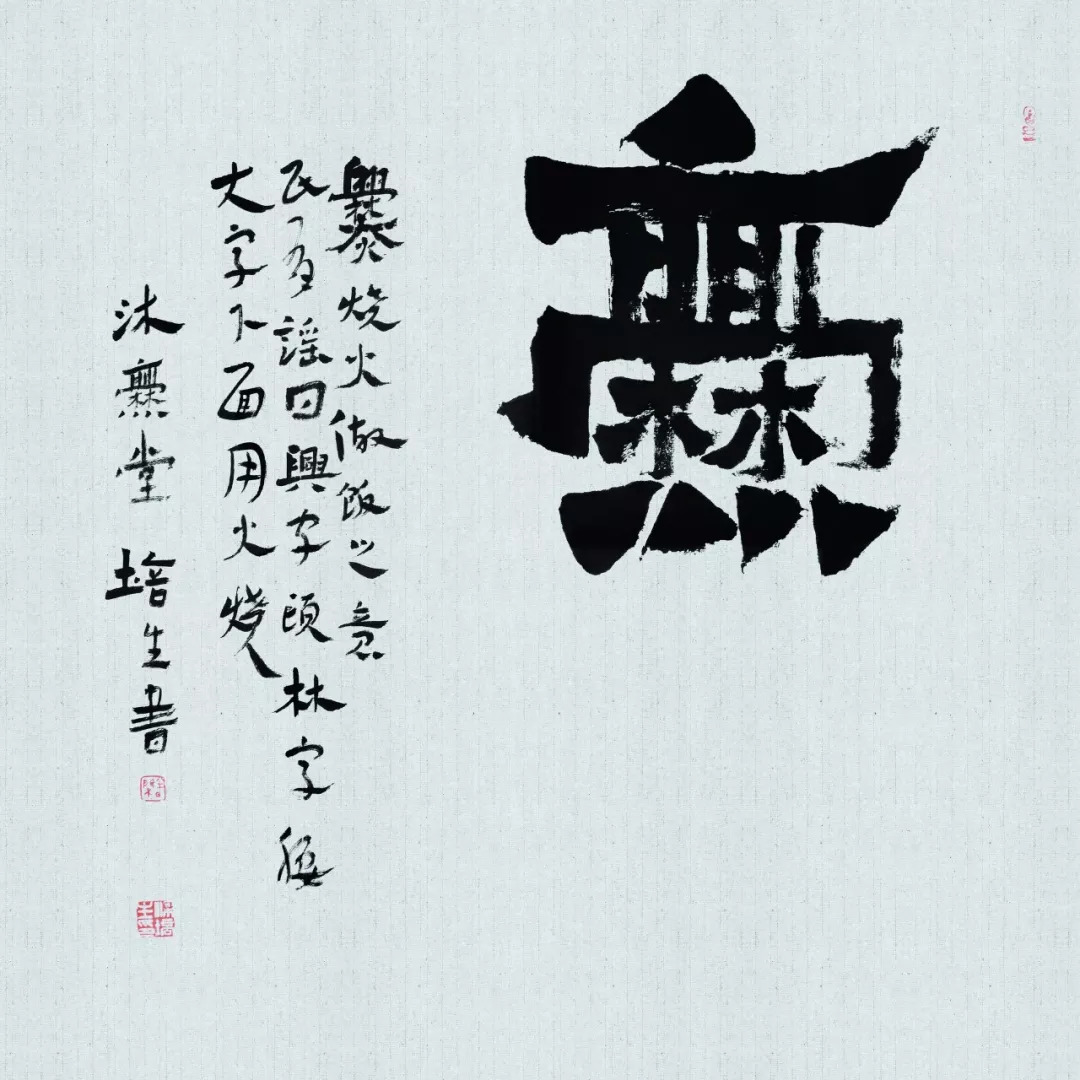 爨
爨烧火做饭之意
民间謡曰興字頭林字腰
大字下面用火燒
沐爨堂 培生書